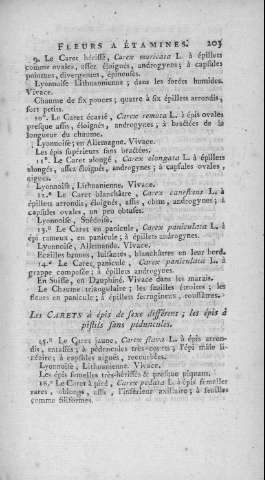 FLEURS A ÉTAMINES. 203
9. Le Caret hérissé, Carex muricata L. à épillets
comme ovales, assez éloignés, androgynes; à capsules
pointues, divergentes, épineuses.
Lyonnoise Lithuanienne; dans les forêts humides.
Vivace.
Chaume de six pouces; quatre à six épillets arrondis,
sort petits.
10.° Le Caret écarté, Carex remota L. à épis ovales
presque assis, éloignés, androgynes; à bractées de la
longueur du chaume.
Lyonnoise; en Allemagne. Vivace.
Les épis supérieurs sans bractées.
11.° Le Caret alongé, Carex elongata L. à épillets
alongés, assez éloignés, androgynes; à capsules ovales,
aigues.
Lyonnoise, Lithuanienne. Vivace.
12.° Le Caret blanchâtre, Carex canescens L. à
épillets arrondis, éloignés, assis, obtus, androgynes; à
capsules ovales, un peu obtuses.
Lyonnoise, Suédoise.
13.° Le Caret en panicule, Carex paniculata L. à
épi rameux, en panicule; à épillets androgynes.
Lyonnoise, Allemande. Vivace.
Ecailles brunes, luisantes, blanchâtres en leur bord.
14.° Le Caret panicule, Carex paniculata L. à
grappe composée; à épillets androgynes.
En Suisse, en Dauphiné. Vivace dans les marais.
Le Chaume triangulaire; les feuilles étroites; les
fleurs en panicule; à épillets ferrugineux, roussâtres.
Les CARETS à épis de sexe différent; les épis à
pistils sans péduncules.
15.° Le Caret jaune, Carex flava L. à épis arron-
dis, entassés; à péduncules très-courts; l'épi mâle li-
néaire; à capsules aiguës, recourbées.
Lyonnoise, Lithuanienne. Vivace.
Les épis femelles très-hérissés & presque piquans.
16.° Le Caret à pied, Carex pedata L. à épis femelles
rares, oblongs, assis, l'inférieur axillaire; à feuilles
comme filiformes.